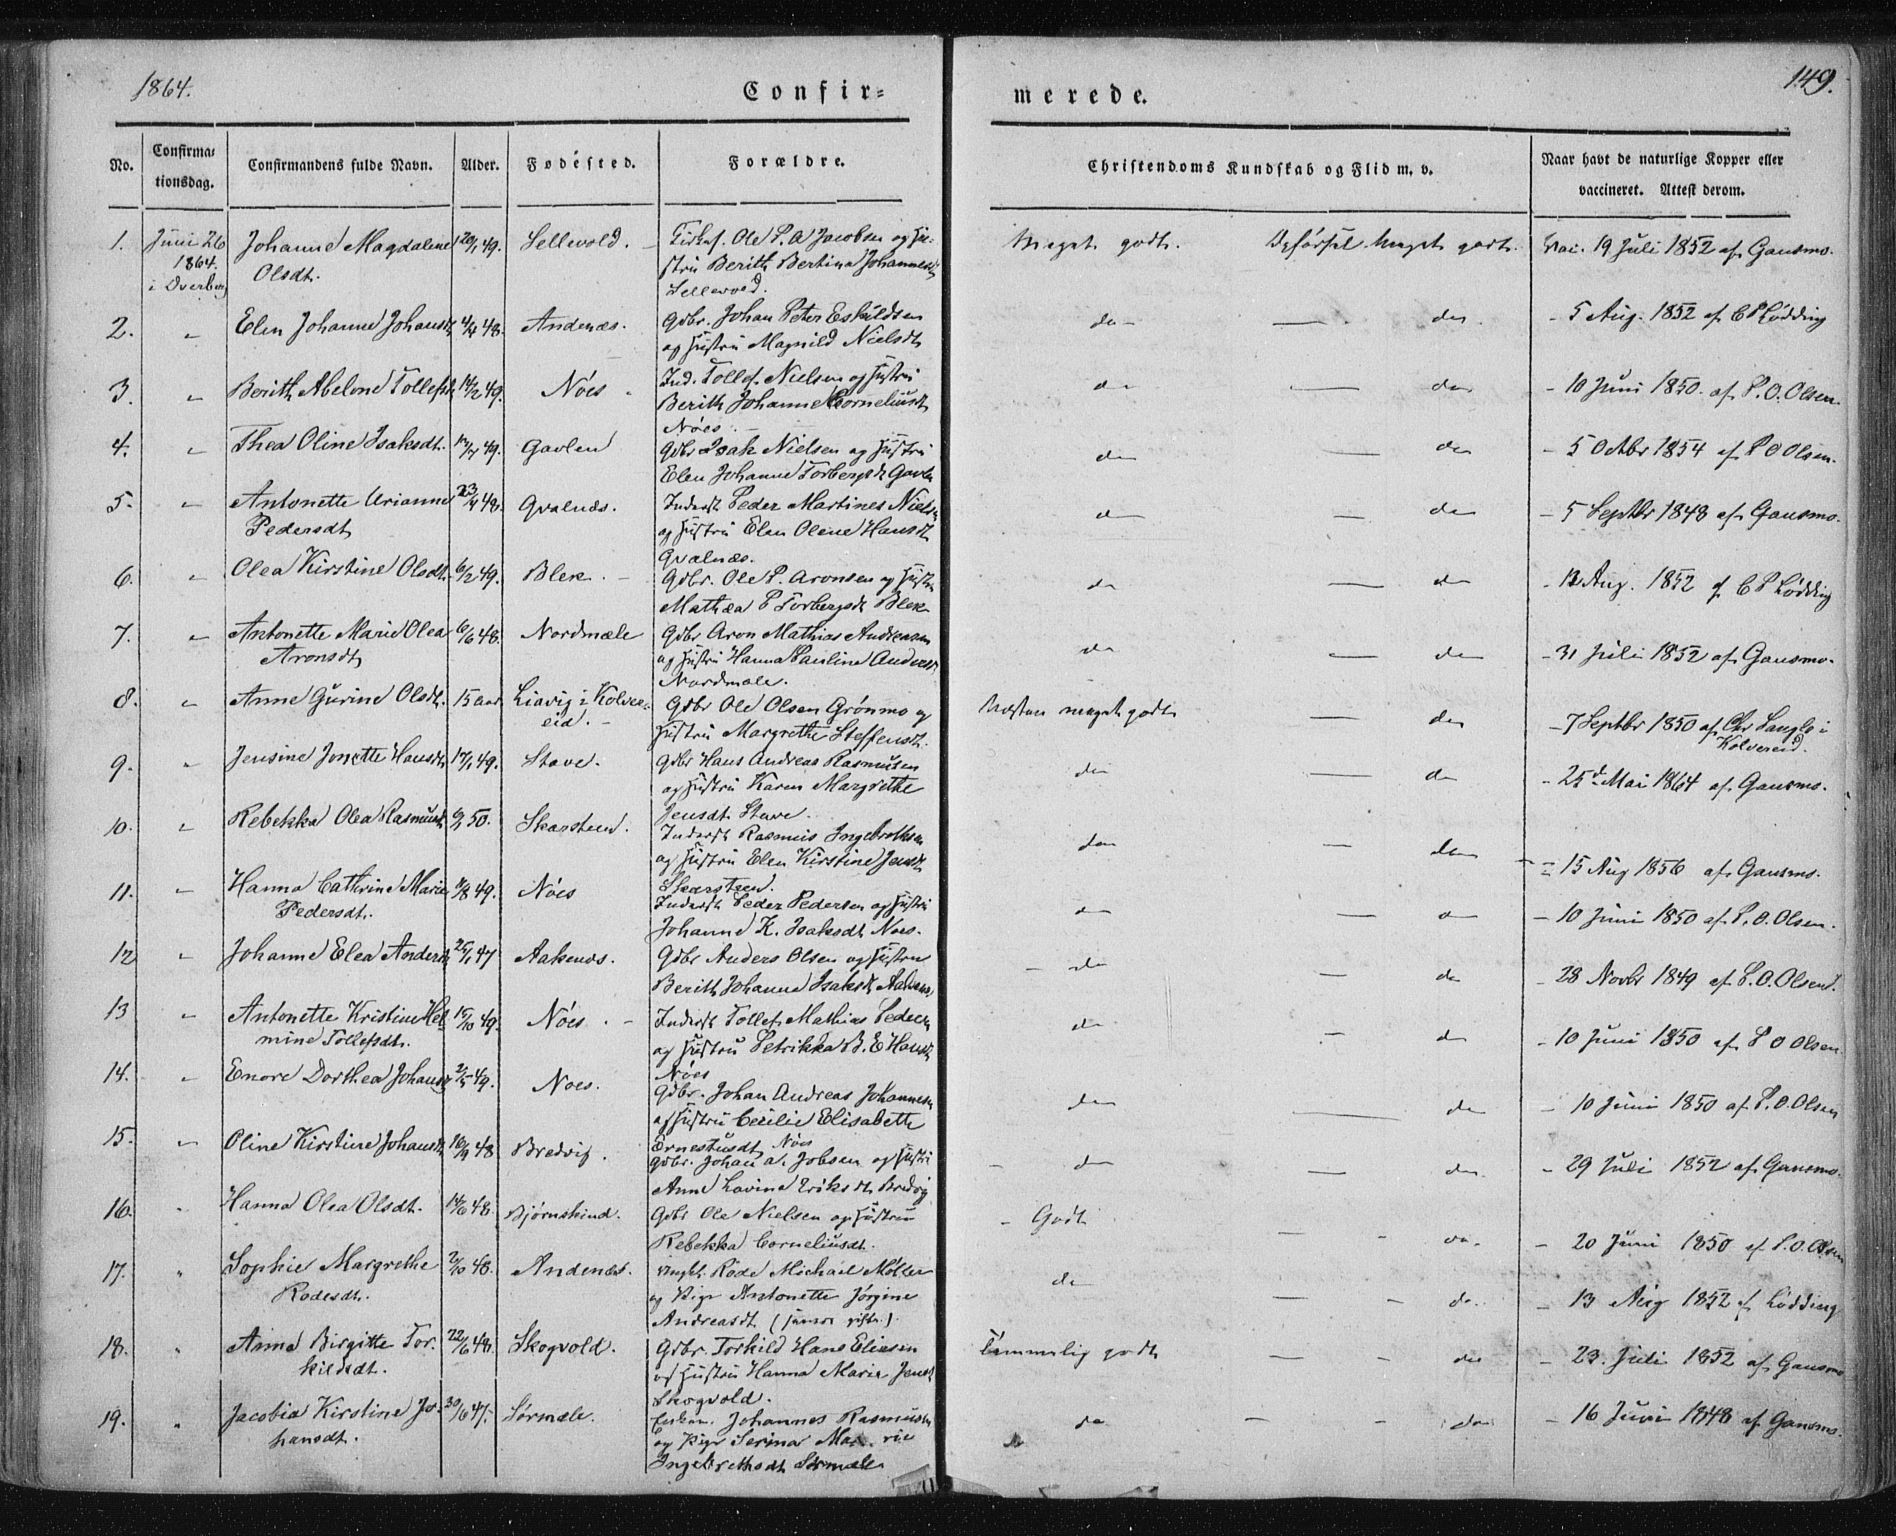 1864.
Confir=
merede.
149.
No.
Confirma=
tionsdag.
Confirmandens fulde Navn.
Alder.
Fødested.
Forældre.
Christendoms Kundskab og Flid m. v.
Naar havt de naturlige Kopper eller
vaccineret. Attest derom.
1. Juni 26 Johanne Magdalene 49. Sellevold. Ole P. A Jacobsen og Hu-
1864. Olsdt. stru Berith Bertina Johannesdt
i Dverberg Sellevold.
Meget godt. Opførsel Meget godt. Vac. 19 Juli 1852 af Gausmo.
2. " Elen Johanne Johansdt 48. Andenæs. Gdbr. Johan Peter Eskildsen
og Hustru Magnild Nielsdt
do — do - 5 Aug. 1852 af C P Lødding
3. " Berith Abelone Tollefsdt 14/2 49. Nöes Ind. Tollef Nielsen og Hustru
Berith Johanne Corneliusdt
Nöes.
do — do - 10 Juni 1850. af P. O. Olsen.
4. " Thea Oline Isaksdt. 49. Gavlen Gdbr Isak Nielsen og Hustru
Elen Johanne Torbergsdt Gavlen
do — do - 5 Octbr 1854 af P O Olsen.
5. " Antonette Urianne 23/4 48. Qvalnæs. Inderst Peder Martines Nielsen
Pedersdt og Hustru Elen Olene Hansdt
Qvalnæs.
do — do - 5 Septbr 1848 af Gausmo.
6. " Olea Kirstine Olsdt. 6/2 49. Blek. Gdbr. Ole P. Aronsen og Hustru
Mathea P Torbergsdt Blek
do — do - 12 Aug. 1852 af C P Lødding
7. " Antonette Marie Olea 6/6 48. Nordmæle Gdbr Aron Mathias Andreasen
Aronsdt og Hustru Hanna Pauline Andersdt
Nordmæle.
do — do - 31 Juli 1852 af Gausmo.
8. " Anne Gurine Olsdt. 15 aar Liavig i Kolver- Gdbr Ole Olsen Grönmo og
eid. Hustru Margrethe Steffensdt.
Næsten meget godt — do - 7 Septbr 1850 af Chr Sangle i
Kolvereid.
9. " Jensine Jonette Hansdt 17/1 49. Stave. Gdbr Hans Andreas Rasmusen
og Hustru Karen Margrethe
Jensdt Stave.
do — do - 25de Mai 1864 af Gausmo.
10. " Rebekka Olea Rasmusdt 50. Skarsteen. Inderst Rasmus Ingebrethsen
og Hustru Elen Kirstine Jensdt
Skarsteen.
do — do - 15 Aug 1856 af Gausmo.
11. " Hanna Cathrine Marie 49. Nöes Inderst Peder Pedersen og Hustru
Pedersdt. Johanne K. Isaksdt Nöes.
do — do - 10 Juni 1850 af P. O. Olsen.
12 " Johanne Elea Andersdt 25/1 47 Aakenæs. Gdbr Anders Olsen og Hustru
Berith Johanna Isaksdt Aakenæs
do — do - 28 Novbr 1849 af P. O. Olsen.
13 " Antonette Kristine Hel- 15/10 49. Nöes. Inderst Tollef Mathias Pedersen
mine Tollefsdt. og Hustru Petrikka B. E Hansdt
Nöes
do — do - 10 Juni 1850 af P O Olsen
14. " Enore Dorthea Johansdt 2/5 49. Noes. Gdbr. Johan Andreas Johannesen
og Hustru Cecilie Elisabette
Ernestusdt Nöes
do — do - 10 Juni 1850 af P. O. Olsen
15. " Oline Kirstine Johansdt 16/9 48 Bredvig. Gdbr. Johan A. Jobsen og Hustru
Anne Lovina Eriksdt Bredvig
do — do - 29 Juli 1852 af Gausmo.
16. " Hanna Olea Olsdt. 14/6 48. Bjørnskind. Gdbr Ole Nielsen og Hustru
Rebekka Corneliusdt.
Godt — do. - 20 Juni 1850 af P. O. Olsen
17. " Sophie Margrethe 2/10 48. Andenæs. Ungk. Rode Michael Møller
Rodesdt. og Pige Antonette Jörgine
Andreasdt
do — do. - 13 Aug 1852 af Lödding
18. " Anna Birgitte Tor- 22/6 48. Skogvold. Gdbr. Torkild Hans Eliesen
kildsdt. og Hustru Hanna Marie Jensdt
Skogvold.
Temmelig godt — do - 23. Juli 1852 af Gausmo
19. " Jacobia Kirstine Jo- 30/6 47. Sörmæle. Johannes Rasmusen
hansdt. og Pige Serina Marie
Ingebrethsdt Sörmæle
do — do - 16 Juni 1848 af Gausmo.